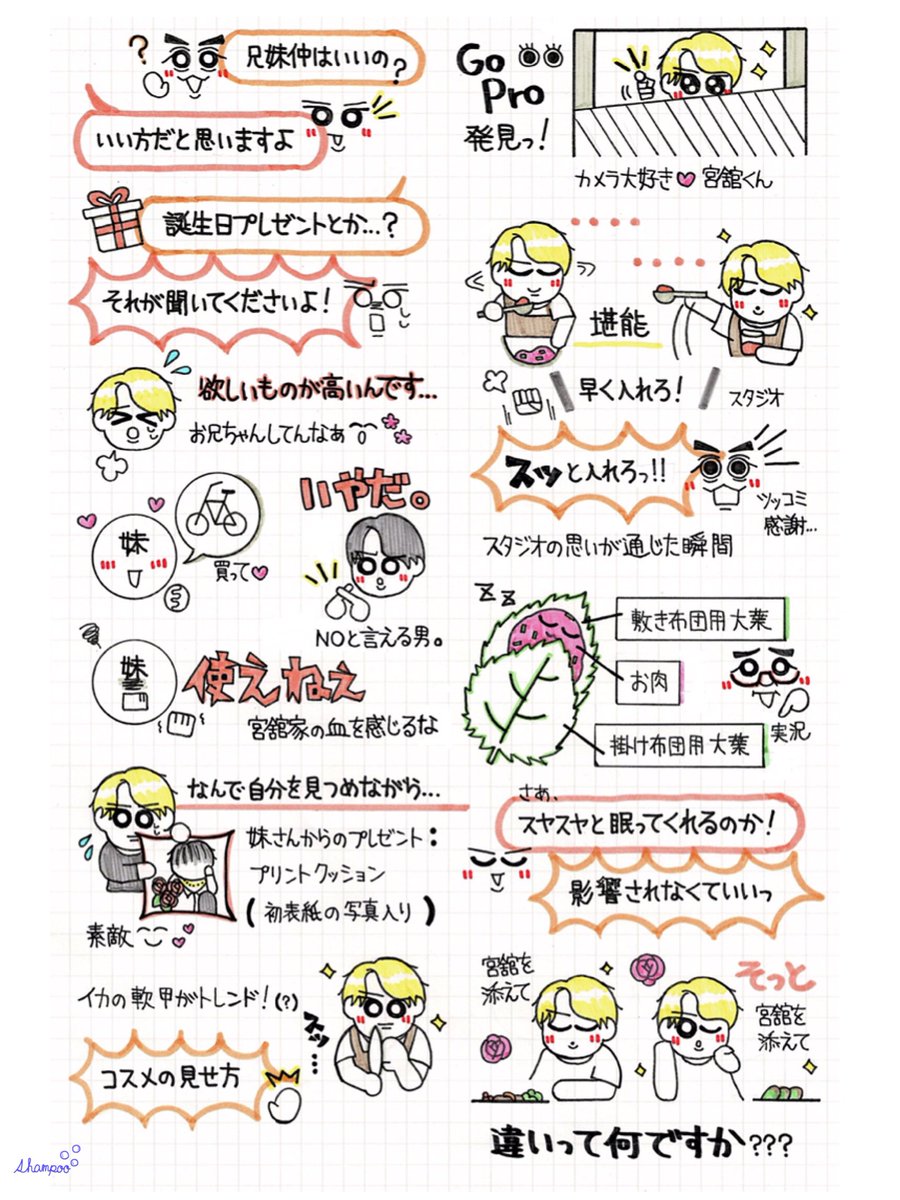 ?
兄妹仲はいいの?
いい方だと思いますよ
誕生日プレゼントとか...?
それが聞いてくださいよ!
欲しいものが高いんです...
お兄ちゃんしてんなぁ
妹
買って
いやだ。
NOと言える男。
妹
使えねぇ
宮舘家の血を感じるな
なんで自分を見つめながら...
妹さんからのプレゼント:
プリントクッション
(初表紙の写真入り)
素敵
イカの軟甲がトレンド!(?)
スッ...
コスメの見せ方
Shampoo
Go
Pro
発見っ!
カメラ大好き 宮舘くん
堪能
早く入れろ!
スタジオ
スッと入れろっ!!
ツッコミ
感謝...
スタジオの思いが通じた瞬間
zz
敷き布団用大葉
お肉
掛け布団用大葉
実況
さあ、
スヤスヤと眠ってくれるのか!
影響されなくていいっ
宮舘を
添えて
そっと
宮舘を
添えて
違いって何ですか???